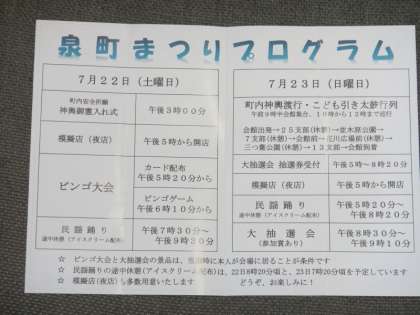 泉町まつりプログラム
7月22日(土曜日)
町内安全祈願
神輿御霊入れ式
午後3時00分
模擬店(夜店)
午後5時から開店
ビンゴ大会
カード配布
午後5時20分から
ビンゴゲーム
午後6時10分から
民謡踊り
途中休憩(アイスクリーム配布)
午後7時30分~
午後9時20分
7月23日(日曜日)
町内神輿渡行・こども引き太鼓行列
午前9時半会館集合、10時から12時まで巡行
会館出発→25支部(休憩)→並木原公園→
7支部(休憩)→会館前→江川広場前(休憩)→
三つ葉公園(休憩)→13支部→会館到着
大抽選会 抽選券受付
午後5時~8時20分
模擬店(夜店)
午後5時から開店
民謡踊り
途中休憩(アイスクリーム配布)
午後5時20分~
午後8時20分
大抽選会
(参加賞あり)
午後8時30分~
午後9時10分
☆ ビンゴ大会と大抽選会の景品は、当選時に本人が会場に居ることが条件です
☆ 民謡踊りの途中休憩(アイスクリーム配布)は、22日8時20分頃と、23日7時20分頃を予定しています
☆ 模擬店(夜店)も多数用意いたします
どうぞ、お楽しみに!